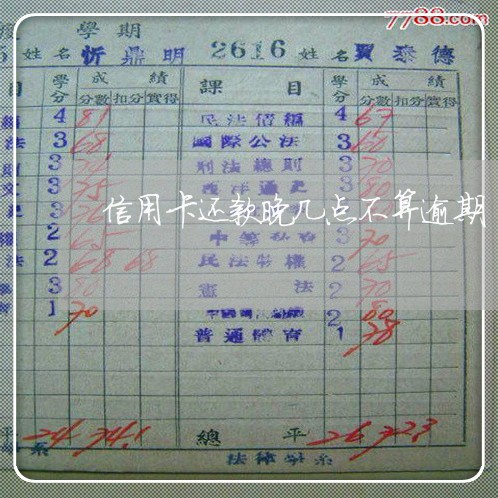 7788.com
學期
姓名 忻鼎明 2616 姓名 賈泰德
目 學分 成績 課目 學分 成績
分數 扣分 實得 分數 扣分 實得
4 81 民法債編 4 67
法 3 68 國際公法 3 60
3 刑法總則 3 70
3 75 西洋通史 3 80
信用卡还款晚几点不算逾期
2 65 3 70
法 2 68 68 民法物權 2 65
3 80 憲法 2 70
1 70 2 80
普通體育 1 78
平 24 74.1 總平 26 72.3
系 法律學系